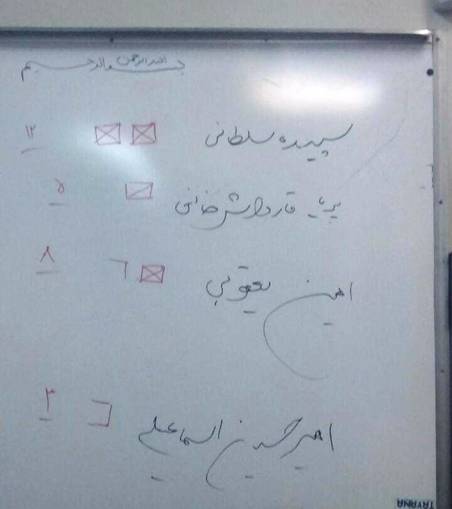 بسم الله الرحمن الرحیم
سپیده سلطانی ۱۲
قارداش خانی ۵
امین یعقوبی ۸
امیرحسین اسماعیلی ۳
TAYANA